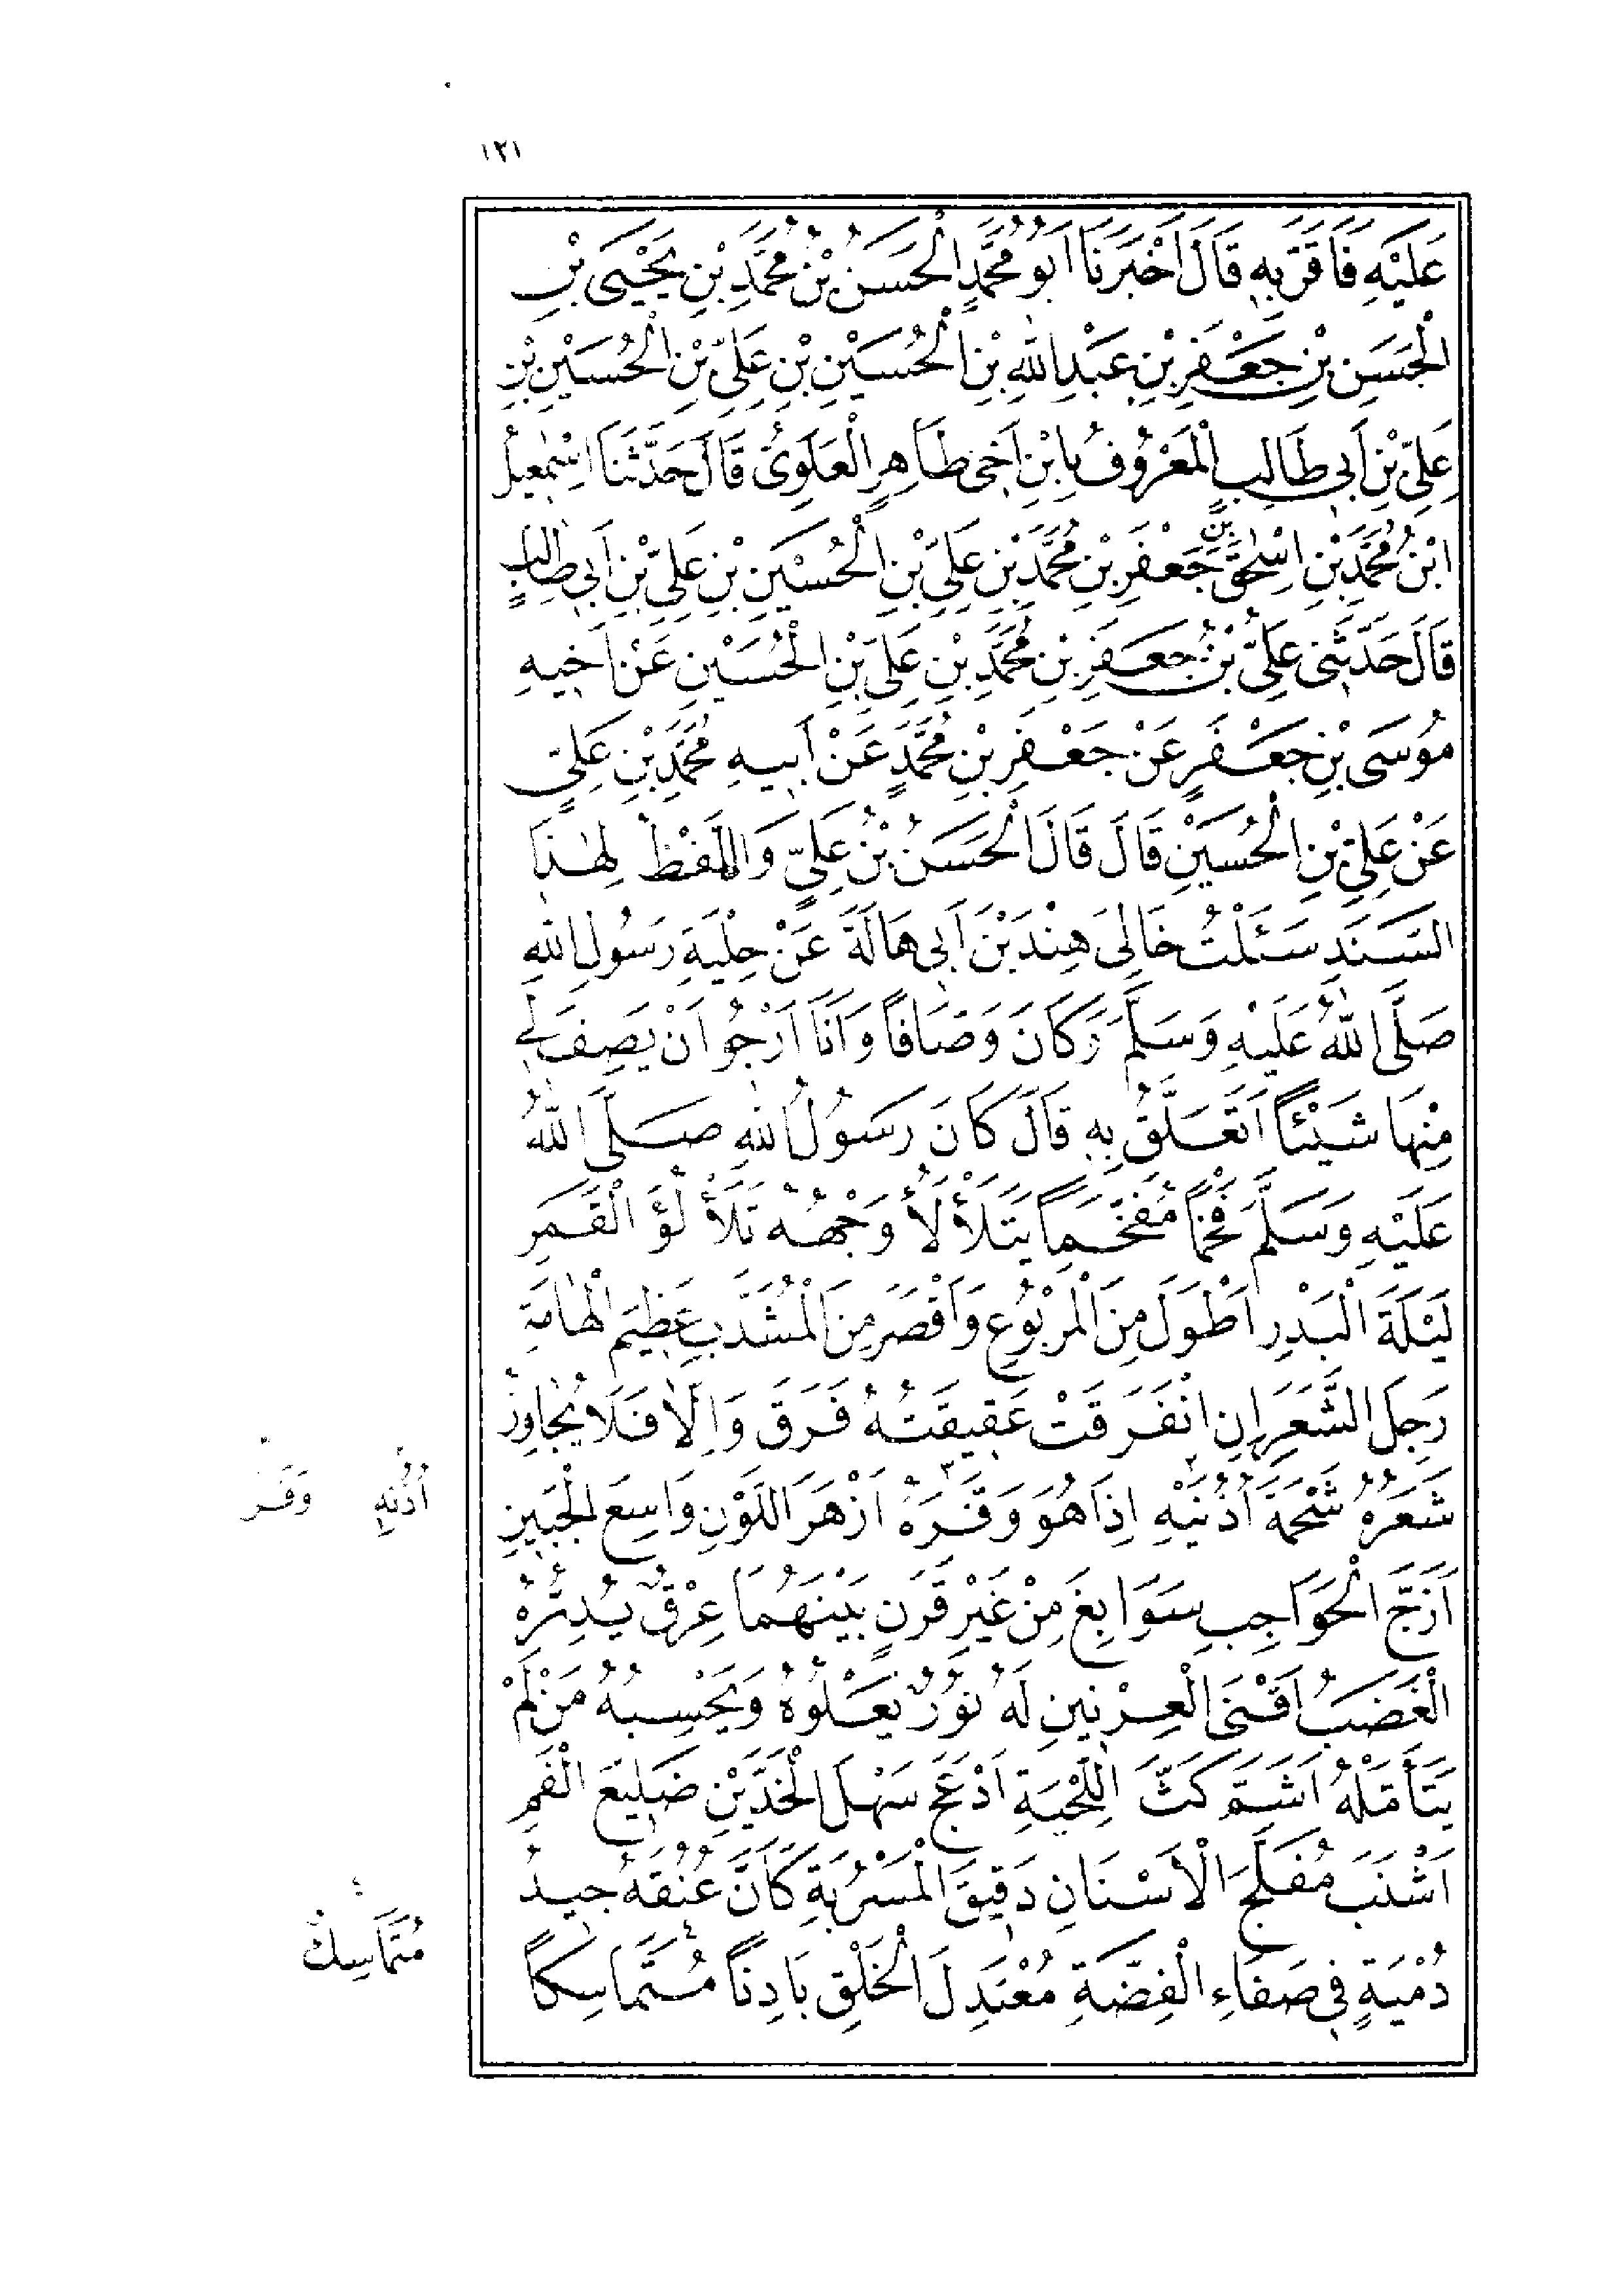 ١٢١
عَلَيْهِ فَاَقَرَّ بِهِ قَالَ اَخْبَرَنَا اَبُو مُحَمَّدٍ الْحَسَنُ بْنُ مُحَمَّدِ بْنِ يَحْيَى بْنِ
الْحَسَنِ بْنِ جَعْفَرِ بْنِ عَبْدِ اللّٰهِ بْنِ الْحُسَيْنِ بْنِ عَلِيِّ بْنِ الْحُسَيْنِ بْنِ
عَلِيِّ بْنِ اَبِي طَالِبٍ الْمَعْرُوفُ بِابْنِ اَخِي طَاهِرٍ الْعَلَوِىُّ قَالَ حَدَّثَنَا اِسْمٰعِيلُ
ابْنُ مُحَمَّدِ بْنِ اِسْحٰقَ بْنِ جَعْفَرِ بْنِ مُحَمَّدِ بْنِ عَلِيِّ بْنِ الْحُسَيْنِ بْنِ عَلِيِّ بْنِ اَبِي طَالِبٍ
قَالَ حَدَّثَنِى عَلِيُّ بْنُ جَعْفَرِ بْنِ مُحَمَّدِ بْنِ عَلِيِّ بْنِ الْحُسَيْنِ عَنْ اَخِيهِ
مُوسَى بْنِ جَعْفَرٍ عَنْ جَعْفَرِ بْنِ مُحَمَّدٍ عَنْ اَبِيهِ مُحَمَّدِ بْنِ عَلِيٍّ
عَنْ عَلِيِّ بْنِ الْحُسَيْنِ قَالَ قَالَ الْحَسَنُ بْنُ عَلِيٍّ وَاللَّفْظُ لِهٰذَا
السَّنَدِ سَئَلْتُ خَالِىَ هِنْدَ بْنَ اَبِي هَالَةَ عَنْ حِلْيَةِ رَسُولِ اللّٰهِ
صَلَّى اللّٰهُ عَلَيْهِ وَسَلَّمَ وَكَانَ وَصَّافًا وَاَنَا اَرْجُو اَنْ يَصِفَ لِي
مِنْهَا شَيْئًا اَتَعَلَّقُ بِهِ قَالَ كَانَ رَسُولُ اللّٰهِ صَلَّى اللّٰهُ
عَلَيْهِ وَسَلَّمَ فَخْمًا مُفَخَّمًا يَتَلَأْلَأُ وَجْهُهُ تَلَأْلُؤَ الْقَمَرِ
لَيْلَةَ الْبَدْرِ اَطْوَلَ مِنَ الْمَرْبُوعِ وَاَقْصَرَ مِنَ الْمُشَذَّبِ عَظِيمَ الْهَامَةِ
رَجِلَ الشَّعَرِ اِنِ انْفَرَقَتْ عَقِيقَتُهُ فَرَقَ وَاِلَّا فَلَا يُجَاوِزُ
شَعَرُهُ شَحْمَةَ اُذُنَيْهِ اِذَا هُوَ وَفَّرَهُ اَزْهَرَ اللَّوْنِ وَاسِعَ الْجَبِينِ
اُذُنِهِ وَفَرَ
اَزَجَّ الْحَوَاجِبِ سَوَابِغَ مِنْ غَيْرِ قَرَنٍ بَيْنَهُمَا عِرْقٌ يُدِرُّهُ
الْغَضَبُ اَقْنَى الْعِرْنِينِ لَهُ نُورٌ يَعْلُوهُ وَيَحْسِبُهُ مَنْ لَمْ
يَتَأَمَّلْهُ اَشَمَّ كَثَّ اللِّحْيَةِ اَدْعَجَ سَهْلَ الْخَدَّيْنِ ضَلِيعَ الْفَمِ
اَشْنَبَ مُفَلَّجَ الْاَسْنَانِ دَقِيقَ الْمَسْرُبَةِ كَاَنَّ عُنُقَهُ جِيدُ
دُمْيَةٍ فِي صَفَاءِ الْفِضَّةِ مُعْتَدِلَ الْخَلْقِ بَادِنًا مُتَمَاسِكًا
مُتَمَاسِكٌ